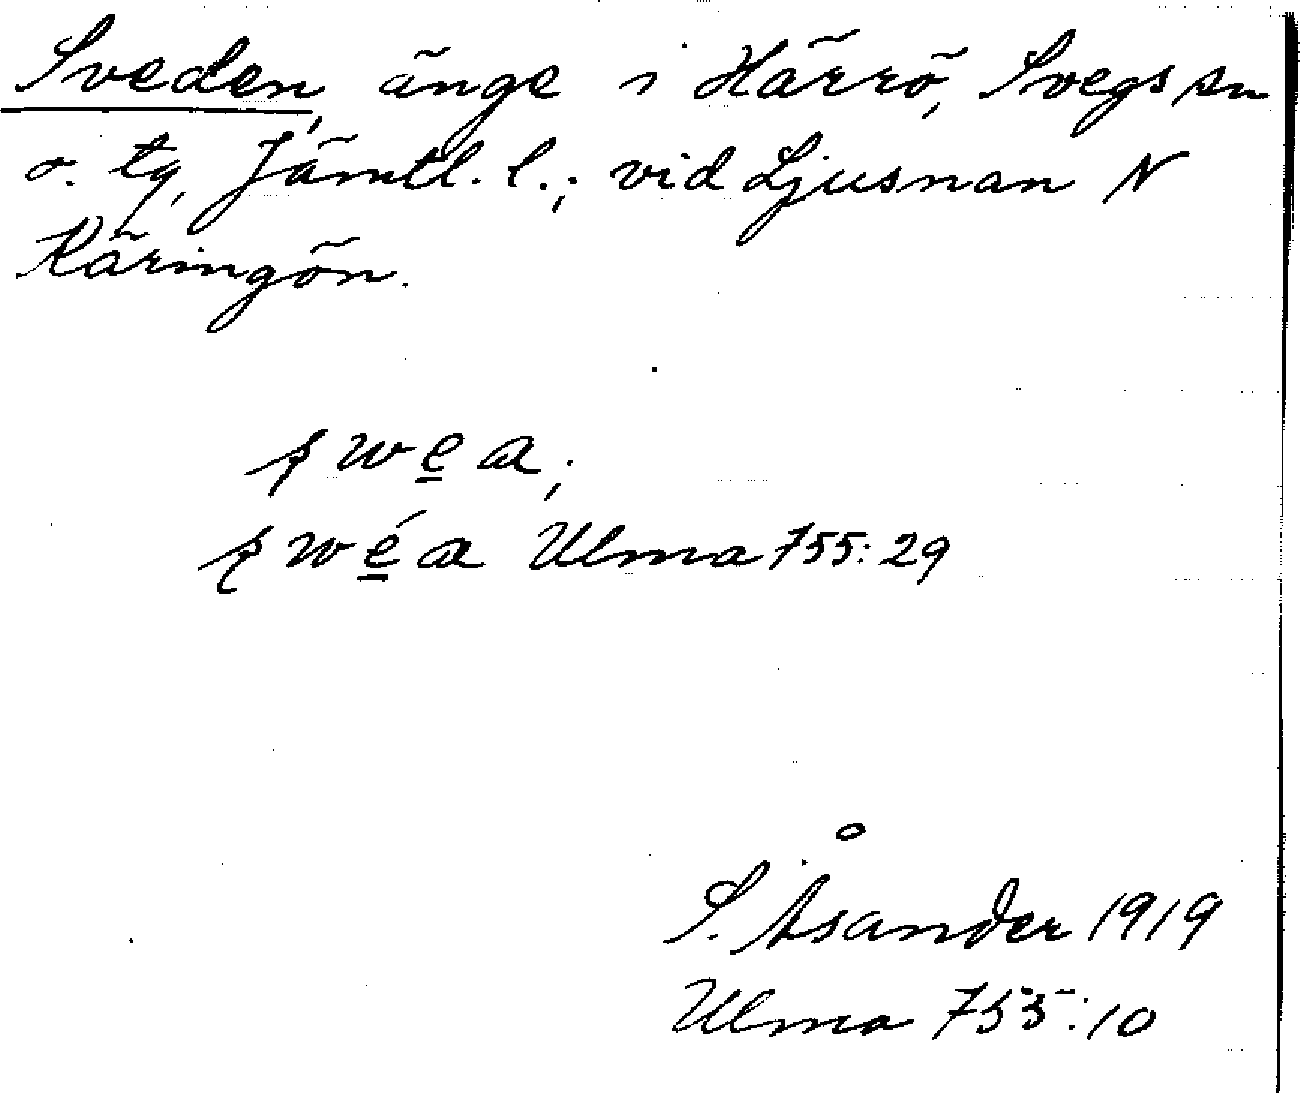 Sveden, änge i Härrö, Svegs sn
o. tg, Jämtl. l.; vid Ljusnan N
Käringön.
s w e a;
s w é a Ulma 755:29
S. Åsander 1919
Ulma 755:10